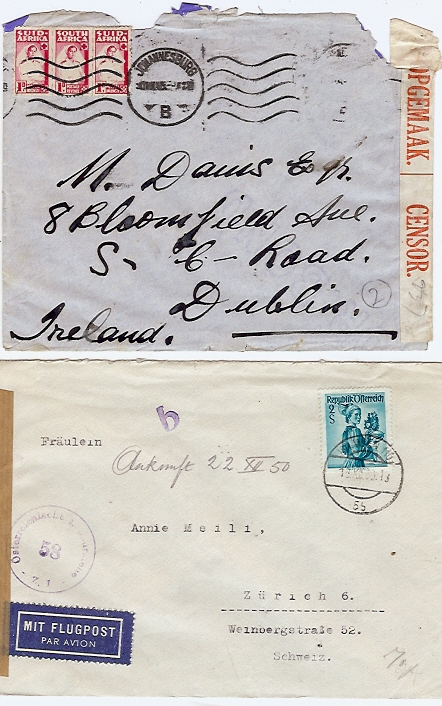 SUID-AFRIKA SOUTH AFRICA SUID-AFRIKA
JOHANNESBURG
B
OPGEMAAK. CENSOR.
M. Danis Esqr.
8 Bloomfield Ave.
S- C- Road.
Dublin.
2
Ireland.
b
Republik Österreich
2
S
Fräulein
Ankunft 22 XII 50
Annie Meili,
Österreichische
53
Z. 1
Zürich 6.
Weinbergstraße 52.
Schweiz.
MIT FLUGPOST
PAR AVION